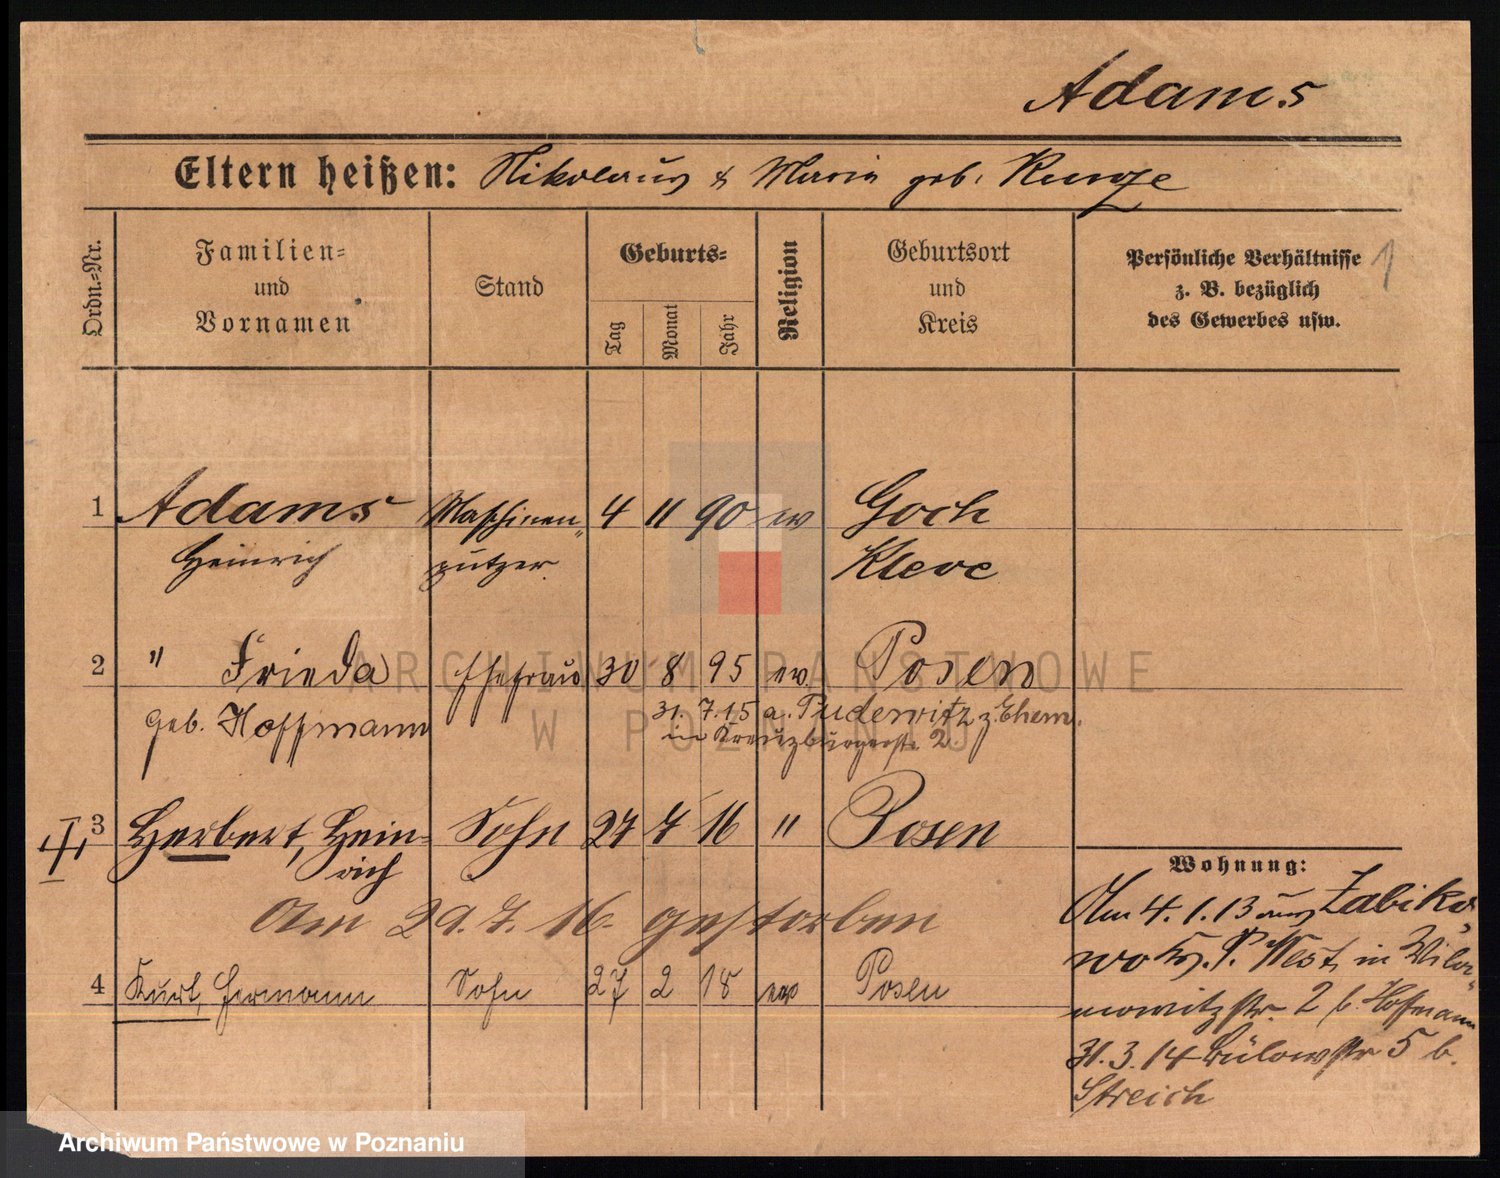 Adams
Eltern heißen: Nikolaus & Maria geb. Runge
Ordn.-Nr.
Familien- und Vornamen
Stand
Geburts-
Tag
Monat
Jahr
Religion
Geburtsort und Kreis
Persönliche Verhältnisse z. B. bezüglich des Gewerbes usw.
1
1 Adams Maschinen- 4 11 90 ev Goch
Heinrich putzer Kleve
2 " Frieda Ehefrau 30 8 95 ev. Posen
geb. Hoffmann 31. 7. 15 a. Pudewitz z. Ehem.
in Kreuzburgerstr. 2
3 Herbert, Hein- Sohn 27 7 16 " Posen
rich
Am 29. 7. 16. gestorben
4 Kurt, Hermann Sohn 27 2 18 Posen
Wohnung:
Am 4. 1. 13 aus Zabiko-
wo Kr. P. West, in Wila-
mowitzstr. 2 b. Hoffmann
31. 3. 14 Bülowstr 5 b.
Streich
ARCHIWUM PAŃSTWOWE
W POZNANIU
Archiwum Państwowe w Poznaniu